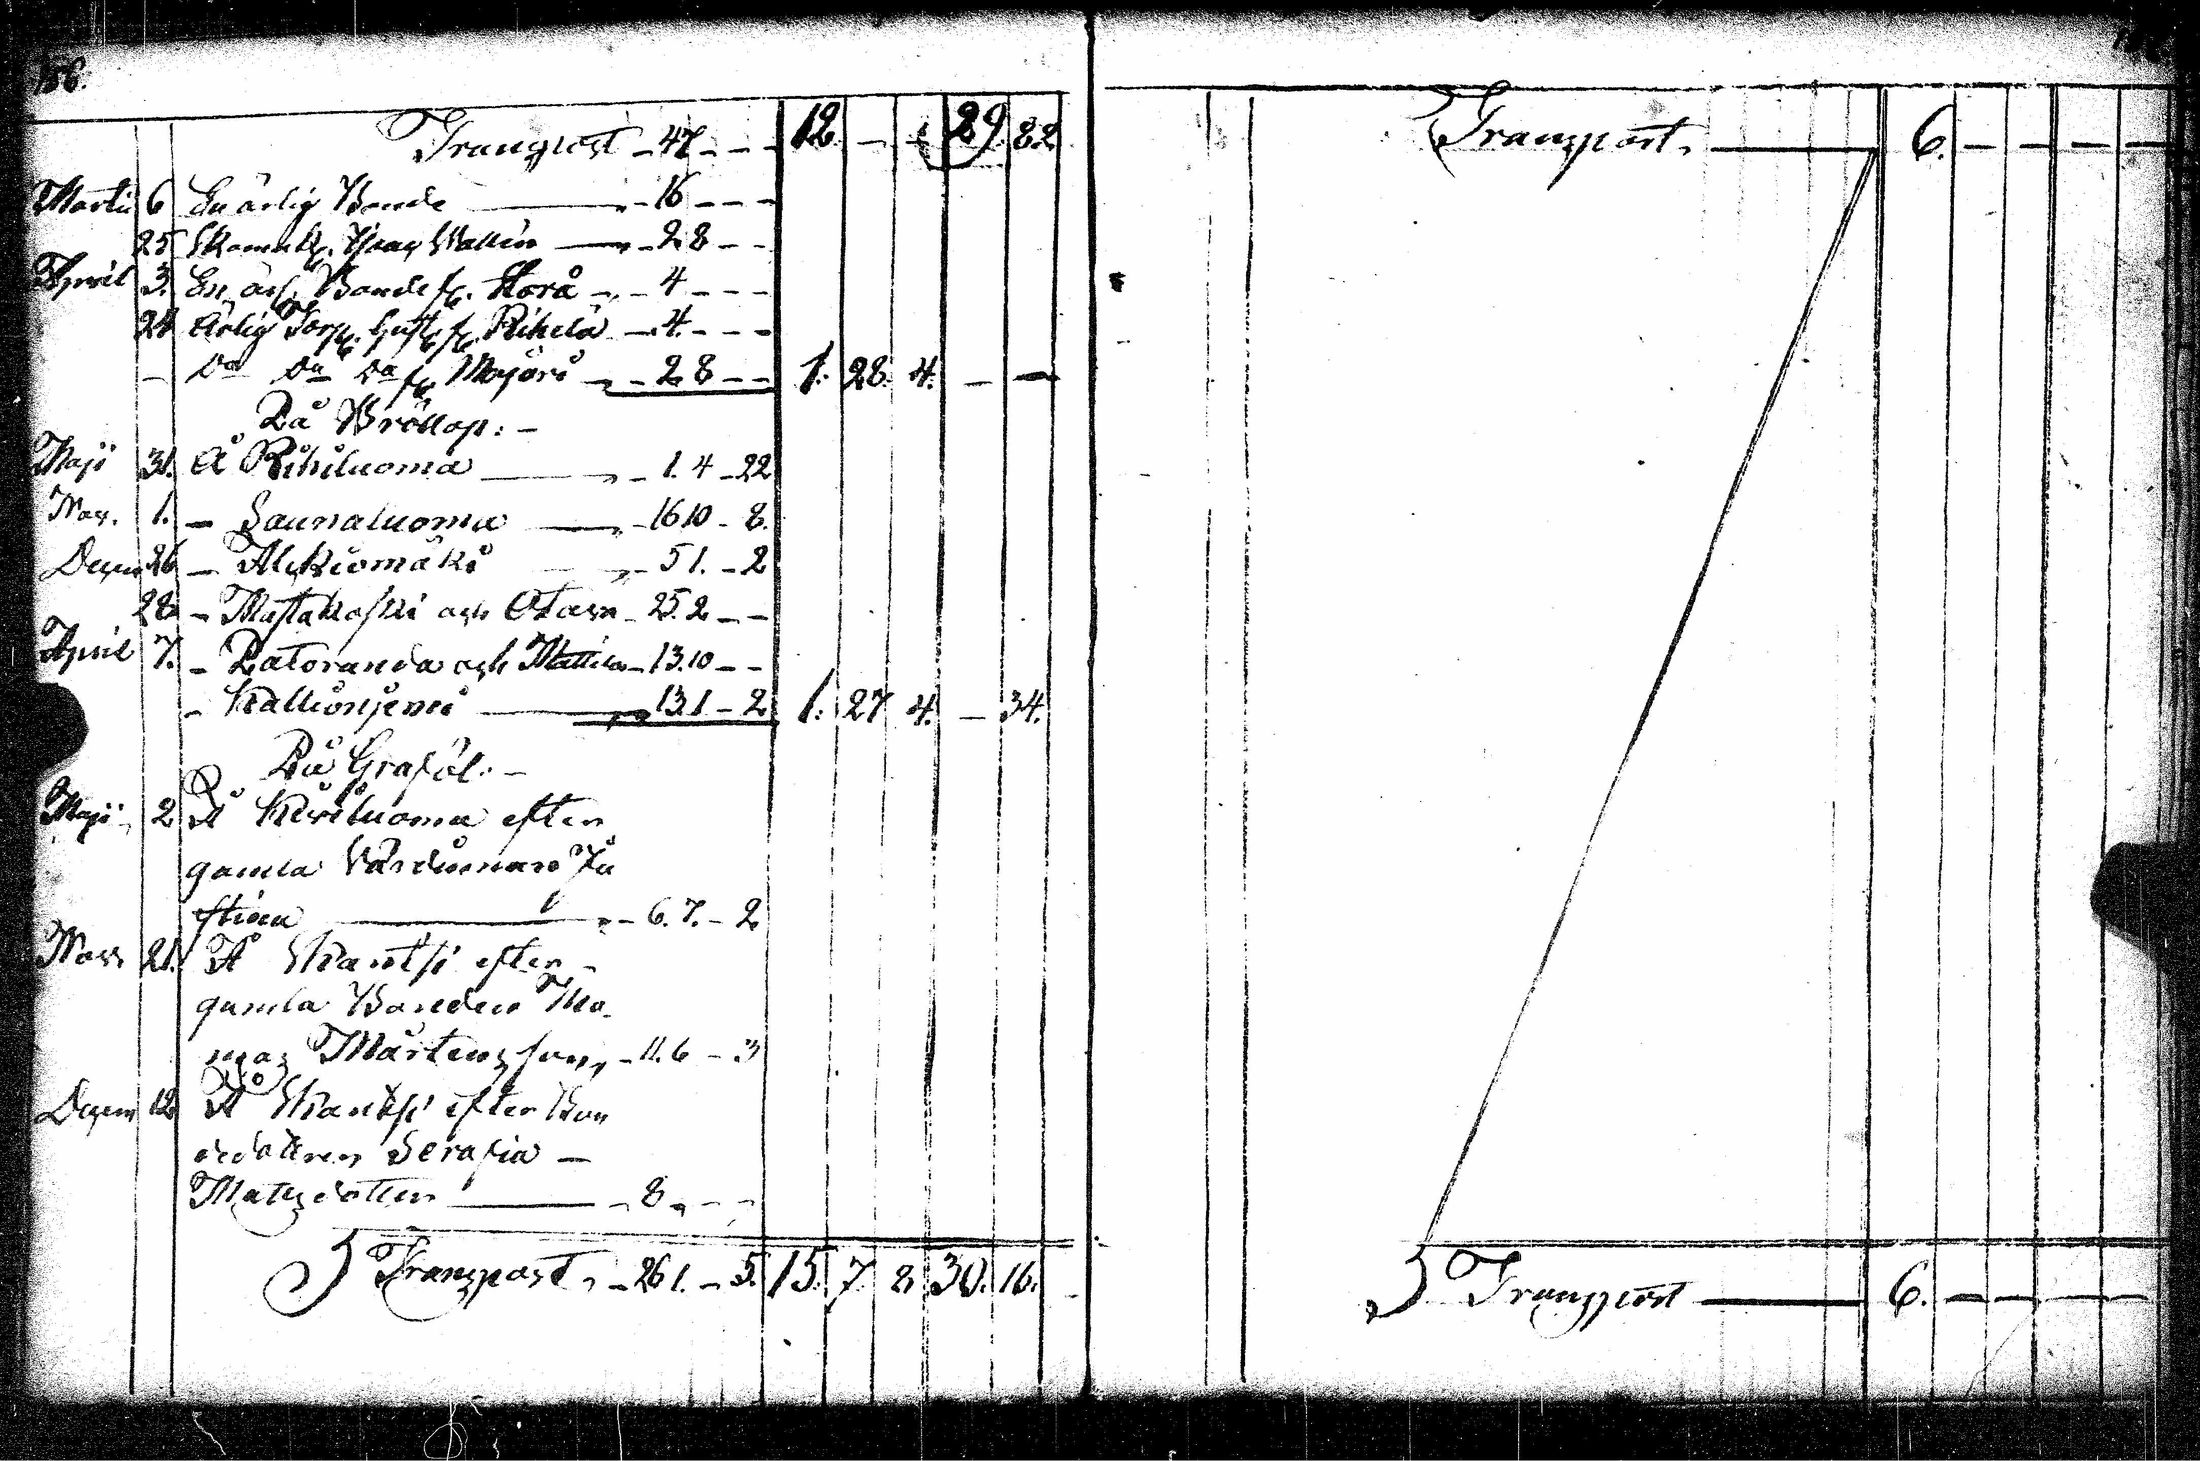 156.
Transport - 47 - - - 12. - - 29. 82
Martii 6 En ärlig Bonde - 16 - - -
25 Skomak. Isaac Wallin - 28 - -
April 3. En ärl. Bonde fr. Storå - 4 - - -
24 Ärlig Torp. Gust. fr. Rihelä - 4. - - -
- Do Do Do fr. Majori - 28 - - 1. 28. 4. - -
På Bröllop: -
Maji 31. Å Rihiluoma - 1. 4 - 22
Nov. 1. - Saunaluoma - 16 10 - 8.
Decem 26 - Aleksiomäki - 5 1. - 2
28 - och - 25. 2 - -
April 7. - Ratoranda och Mattila - 13. 10 - -
- - 13. 1 - 2 1. 27 4. - 34.
På Grafööl: -
Maji 2 Å Kiviluoma efter
gamla Värdinnan Ju
stina - 6. 7. - 2
Nov. 21. Å efter -
gamla Bonden Tho
mas Mårtensson, - 11. 6 - 3
Decem 12 Å efter Bon
dedottren Serafia -
Matsdotter - 8 - - -
Transport, - 26 1. - 5. 15. 7. 8 30. 16.
Transport. 6. - - - -
Transport 6. - - - -